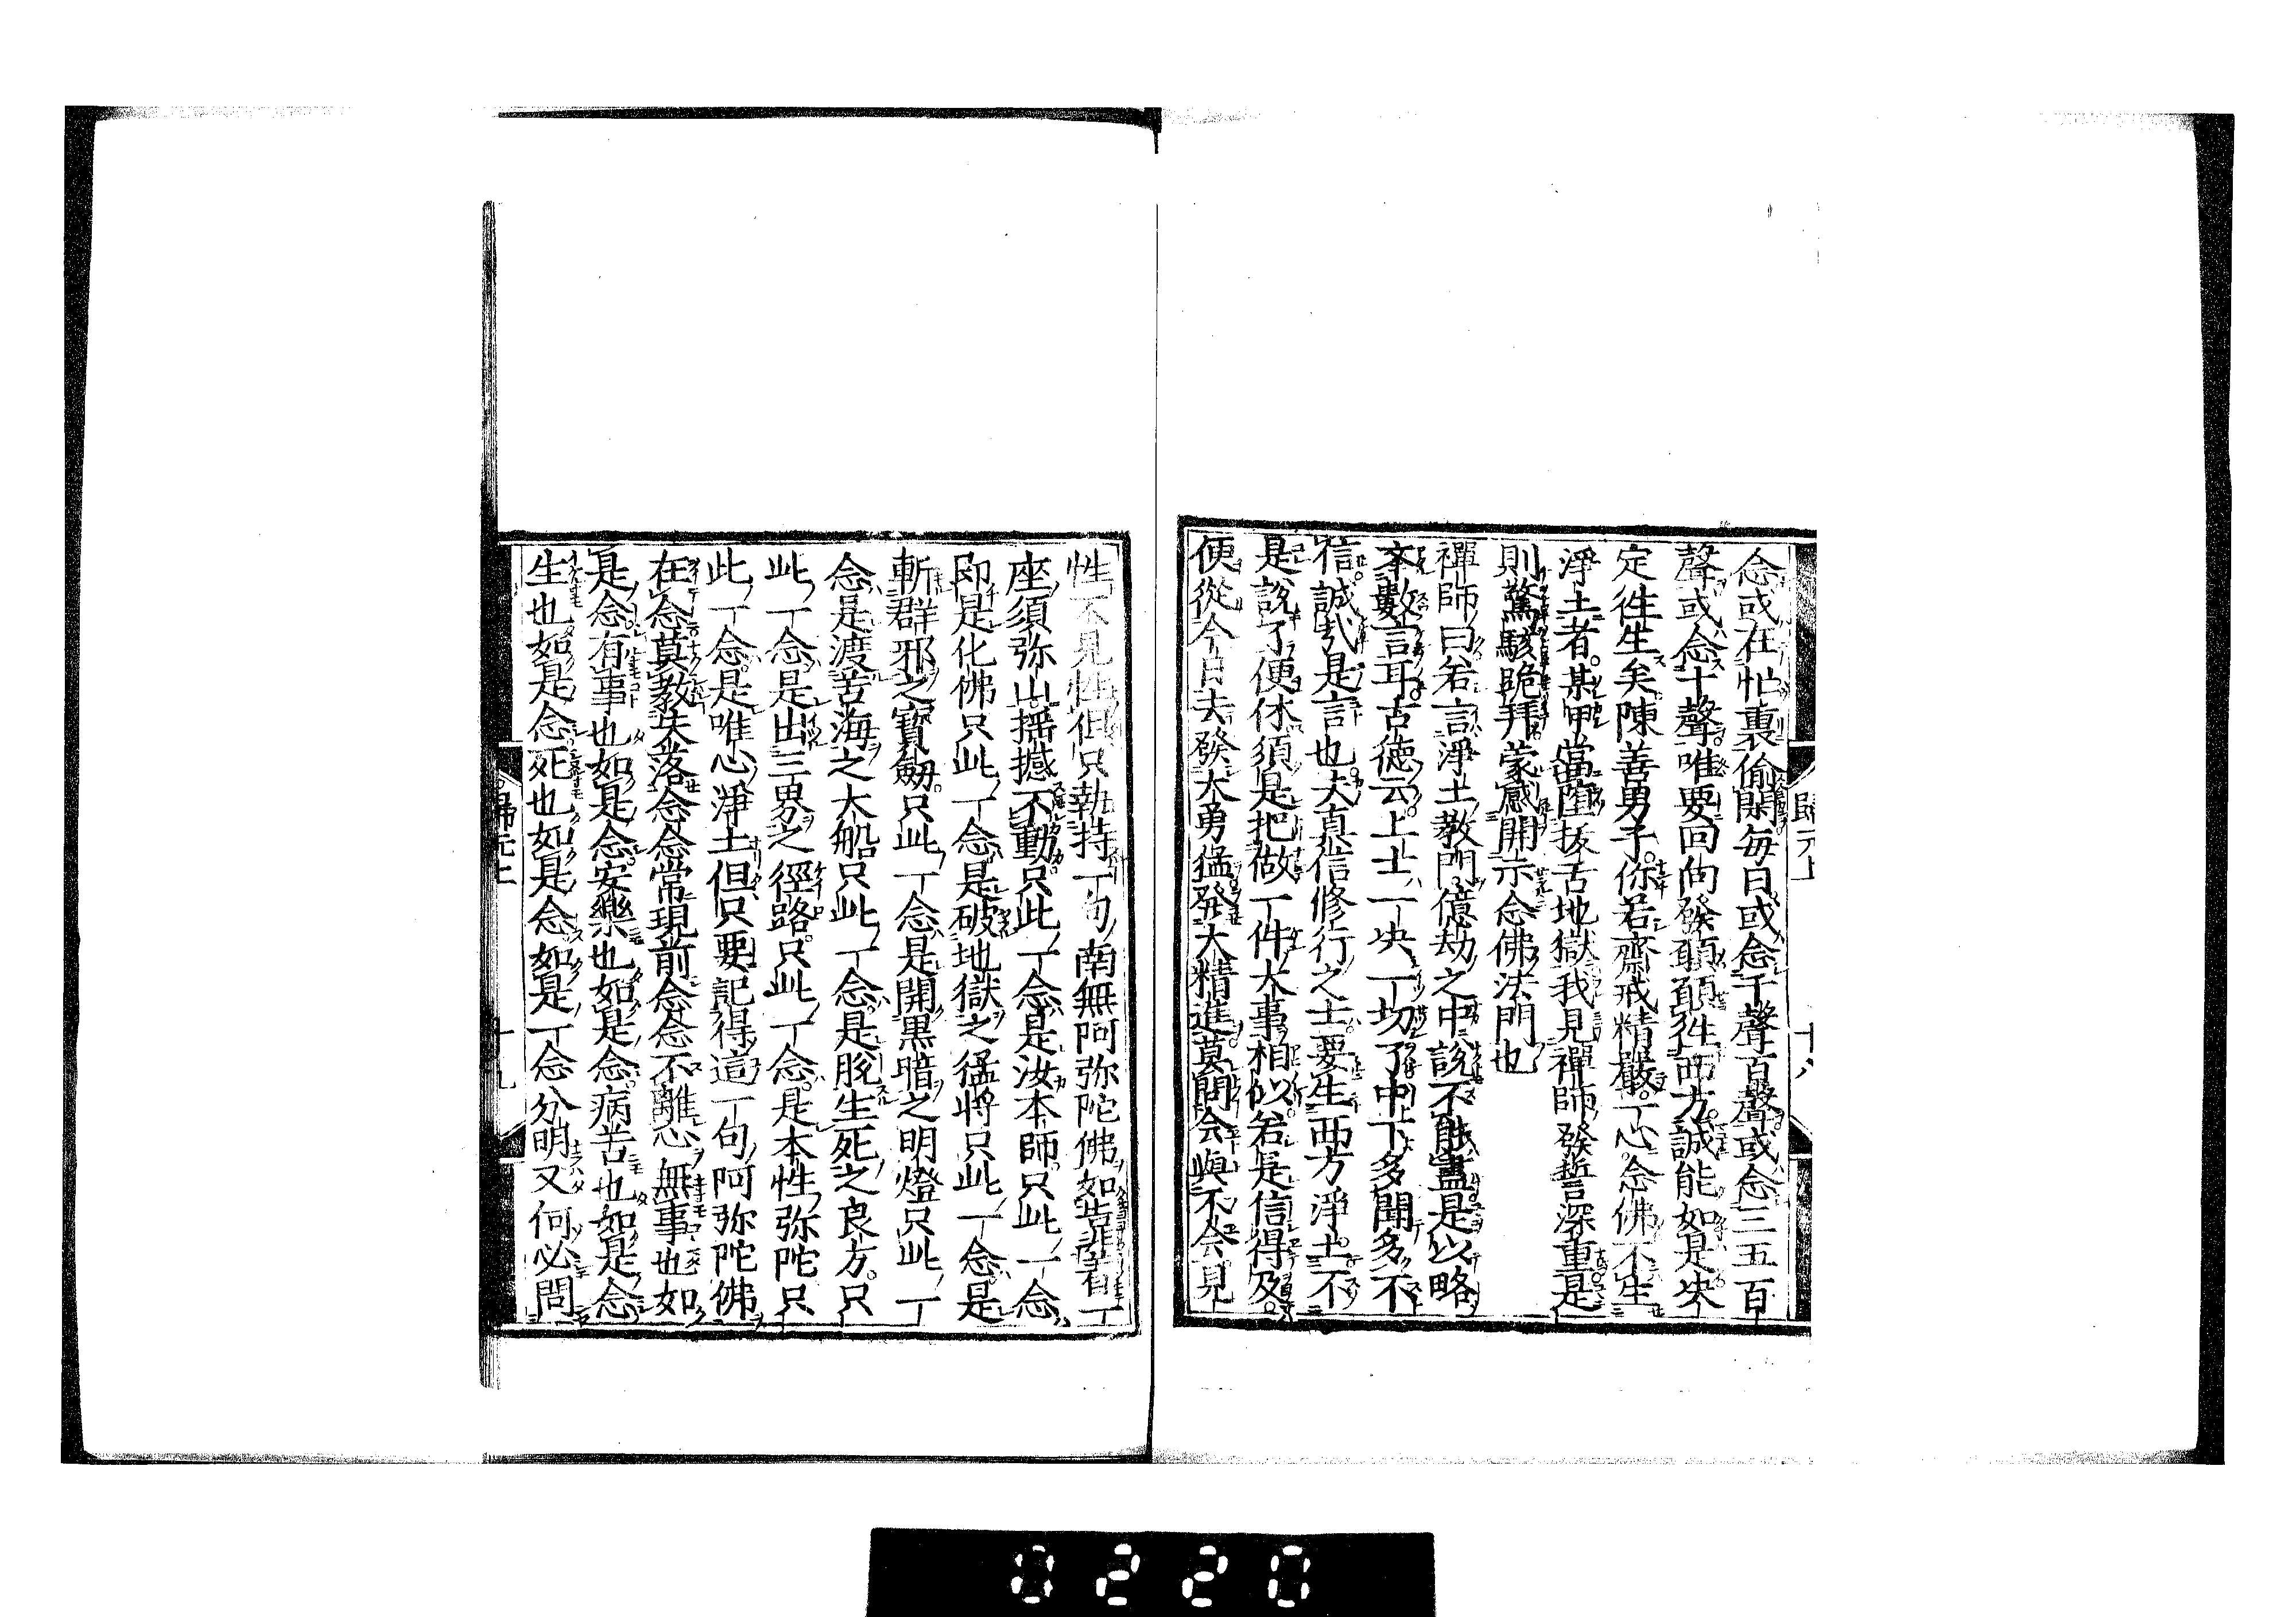 念或在忙裏偷閑每日或念千聲百聲或念三五百
聲或念十聲唯要回向發願願徃西方誠能如是决
定徃生矣陳善男子你若齋戒精嚴一心念佛不生
淨土者某甲當墮拔舌地獄我見禪師發誓深重是
則驚駭跪拜蒙感開示念佛法門也
禪師曰若言淨土教門億劫之中說不能盡是以略
數言耳古德云上士一决一切了中下多聞多不
信誠哉是言也夫真信修行之士要生西方淨土不
是說了便休須是把做一件大事相似若是信得及
便從今日去發大勇猛發大精進莫問会與不会見
歸元上
十八
性不見性但只執持一句南無阿弥陀佛如靠着一
座須弥山揺撼不動只此一念是汝本師只此一念
即是化佛只此一念是破地獄之猛将只此一念是
斬群邪之寶劔只此一念是開黒暗之明燈只此一
念是渡苦海之大船只此一念是脫生死之良方只
此一念是出三界之徑路只此一念是本性弥陀只
此一念是唯心淨土但只要記得這一句阿弥陀佛
在念莫教失落念念常現前念念不離心無事也如
是念有事也如是念安樂也如是念病苦也如是念
生也如是念死也如是念如是一念分明又何必問
歸元上
十九
0220